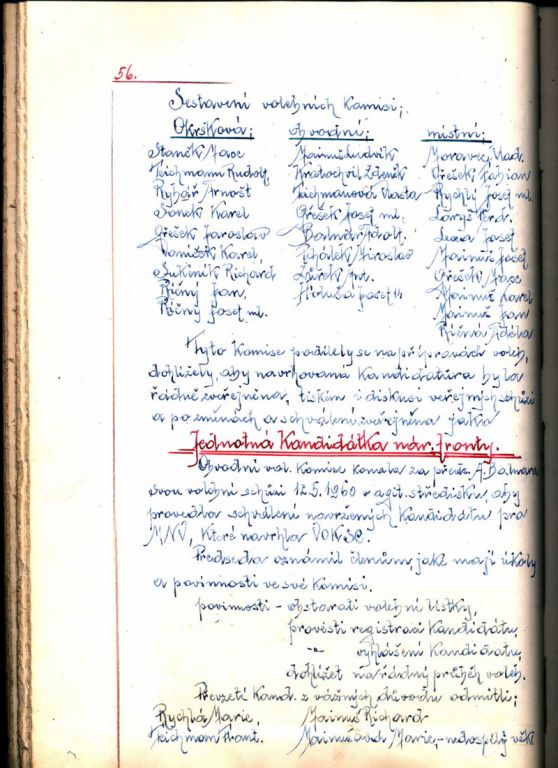 56.
Sestavení volebních komisí;
Okrsková; obvodní; místní;
Staněk Max Mainuš Ludvík Moravec Vlad.
Teichmann Rudolf, Kratochvil Zdeněk Ořešek Fabian
Rybář Arnošt Teichmanová Vlasta Rychlý Josef ml.
Sonek Karel Ořešek Josef ml. Laryš Ferd.
Ořešek Jaroslav Balnar Adolf. Lexa Josef
Vaníček Karel, Pchálek Miroslav Mainuš Josef
Sukeník Richard Žůrek Ořešek Max
Říčný Jan. Hiduša Josef 14 Mainuš Karel
Říčný Josef ml. Mainuš Jan
Říčná Adéla
Tyto komise podílely se na přípravách voleb,
dohlížely, aby navrhovaná kandidatura byla
řádně zveřejněna, tiskem i diskusí veřejných schůzí
a po změnách a schválení zveřejněna jako
Jednotná kandidátka nár. fronty.
Obvodní vol. komise konala za před. A. Balnara
svou volební schůzi 12.5.1960 v agit. středisku, aby
provedla schválení navržených kandidátů pro
MNV, které navrhla VOKSČ.
Předseda oznámil členům, jaké mají úkoly
a povinnosti ve své komisi.
povinnosti - obstarati volební lístky,
provésti registraci kandidátů,
-"- vyhlášení kandidátů,
dohlížet na řádný průběh voleb.
Převzetí kand. z vážných důvodů odmítli;
Rychlá Marie, Mainuš Richard
Teichman Frant. Mainušová Marie, - nedospělý věk